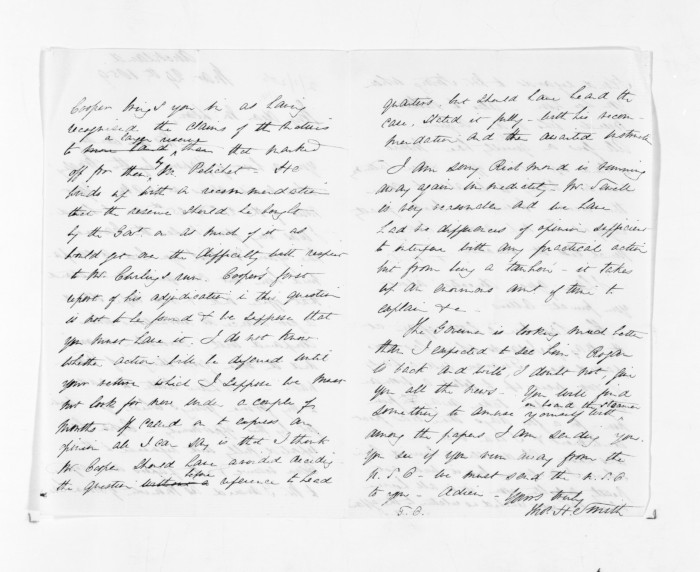 Cooper brings you in as having
recognised the claims of the Natives
to more land a larger reserve than that marked
off for them by Mr. Polichet. He
winds up with a recommendation
that the reserve should be bought
by the Govt or as much of it as
would get over the difficulty with respect
to Mr. Curling's run. Cooper's first
report of his adjudication in this question
is not to be found & he supposes that
you must have it. I do not know
whether action will be deferred until
your return which I suppose we must
not look for here under a couple of
months - If called on to express an
opinion all I can say is that I think
Mr Cooper should have avoided deciding
the question without before a reference to head
quarters, but should have heard the
case, stated it fully - with his recom-
mendation and then awaited instruct
I am sorry Richmond is running
away again immediately. Mr.
is very reasonable and we have
had no differences of opinion sufficient
to interfere with any practical action
but from being a - it takes
up an enormous amt of time to
explain &c -
The Governor is looking much better
than I expected to see him. Rogan
is back and will I doubt not give
you all the news. You will find
something to amuse yourself with on board the steamer
among the papers I am sending you.
You see if you run away from the
N. S. O - we must send the N. S. O
to you - Adieu - Yours truly
Thos. H. Smith